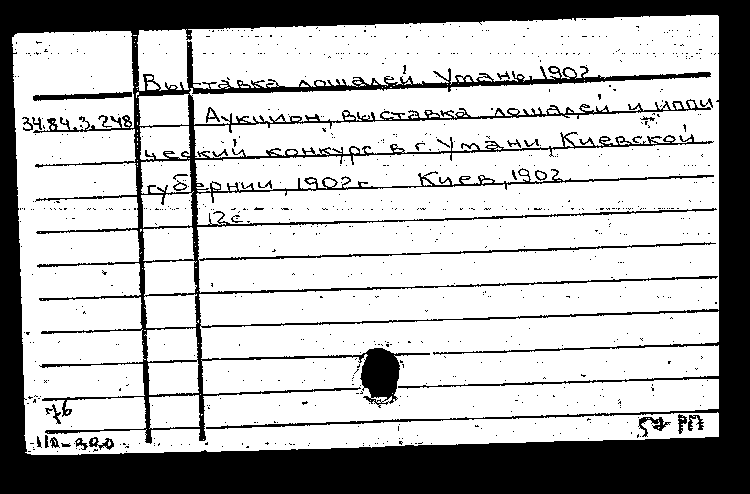 Выставка лошадей. Умань, 1902
34.84.3.248 Аукцион, выставка лошадей и иппи-
ческий конкурс в г. Умани, Киевской
губернии, 1902 г. Киев, 1902.
12 с.
76
57 РП